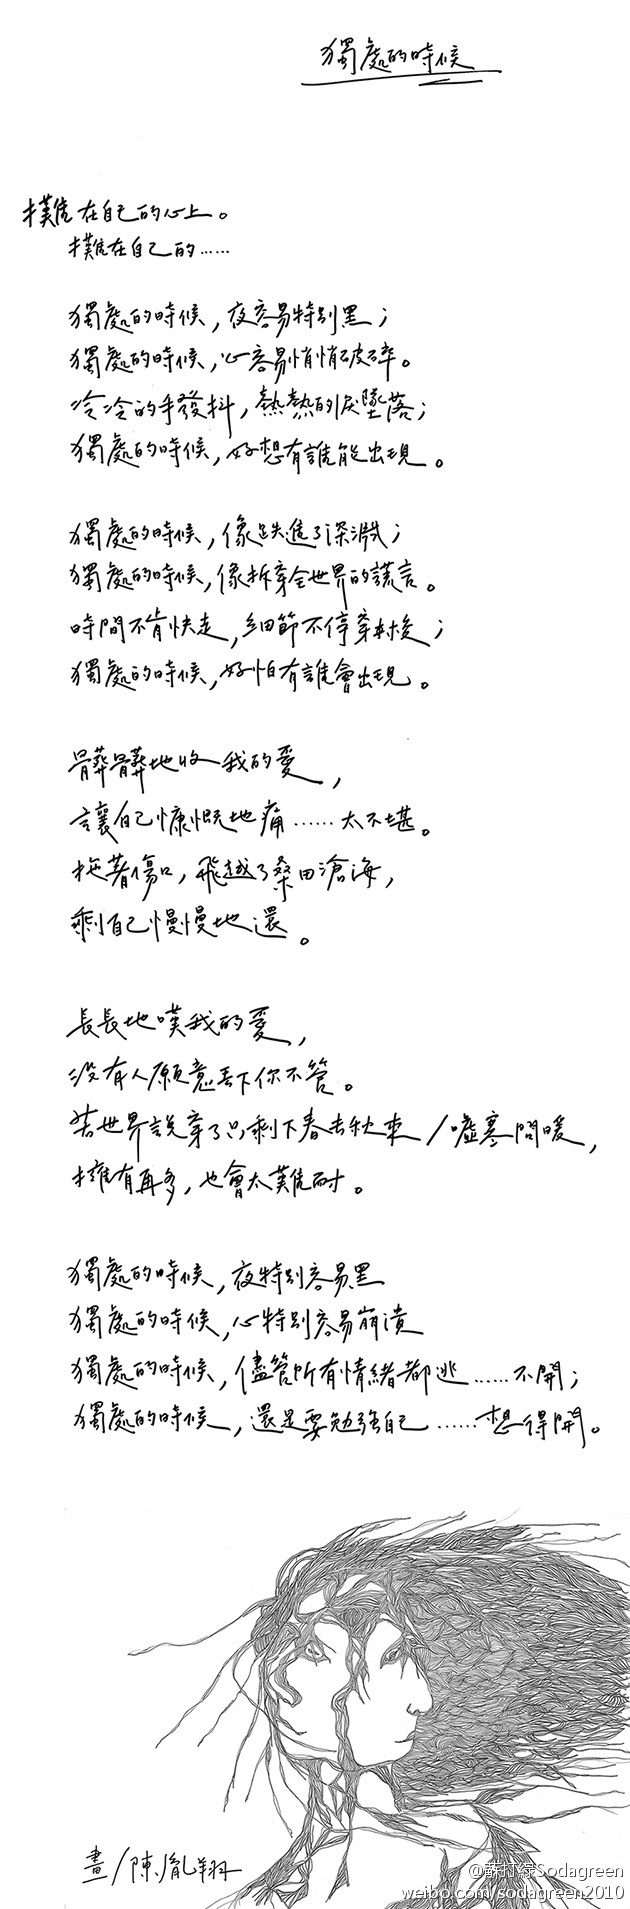 獨處的時候
攤在自己的心上。
攤在自己的……
獨處的時候，夜容易特別黑；
獨處的時候，心容易悄悄破碎。
冷冷的手發抖，熱熱的淚墜落；
獨處的時候，好想有誰能出現。
獨處的時候，像跌進了深淵；
獨處的時候，像拆穿全世界的謊言。
時間不肯快走，細節不停穿梭；
獨處的時候，好怕有誰會出現。
髒髒地收我的愛，
讓自己慷慨地痛……太不堪。
拖著傷口，飛越了桑田滄海，
剩自己慢慢地還。
長長地嘆我的愛，
沒有人願意丟下你不管。
若世界說穿了只剩下春去秋來/噓寒問暖，
擁有再多，也會太難耐。
獨處的時候，夜特別容易黑
獨處的時候，心特別容易崩潰
獨處的時候，儘管所有情緒都逃……不開；
獨處的時候，還是要勉強自己……想得開。
畫/陳胤翔
@蘇打綠Sodagreen
weibo.com/sodagreen2010